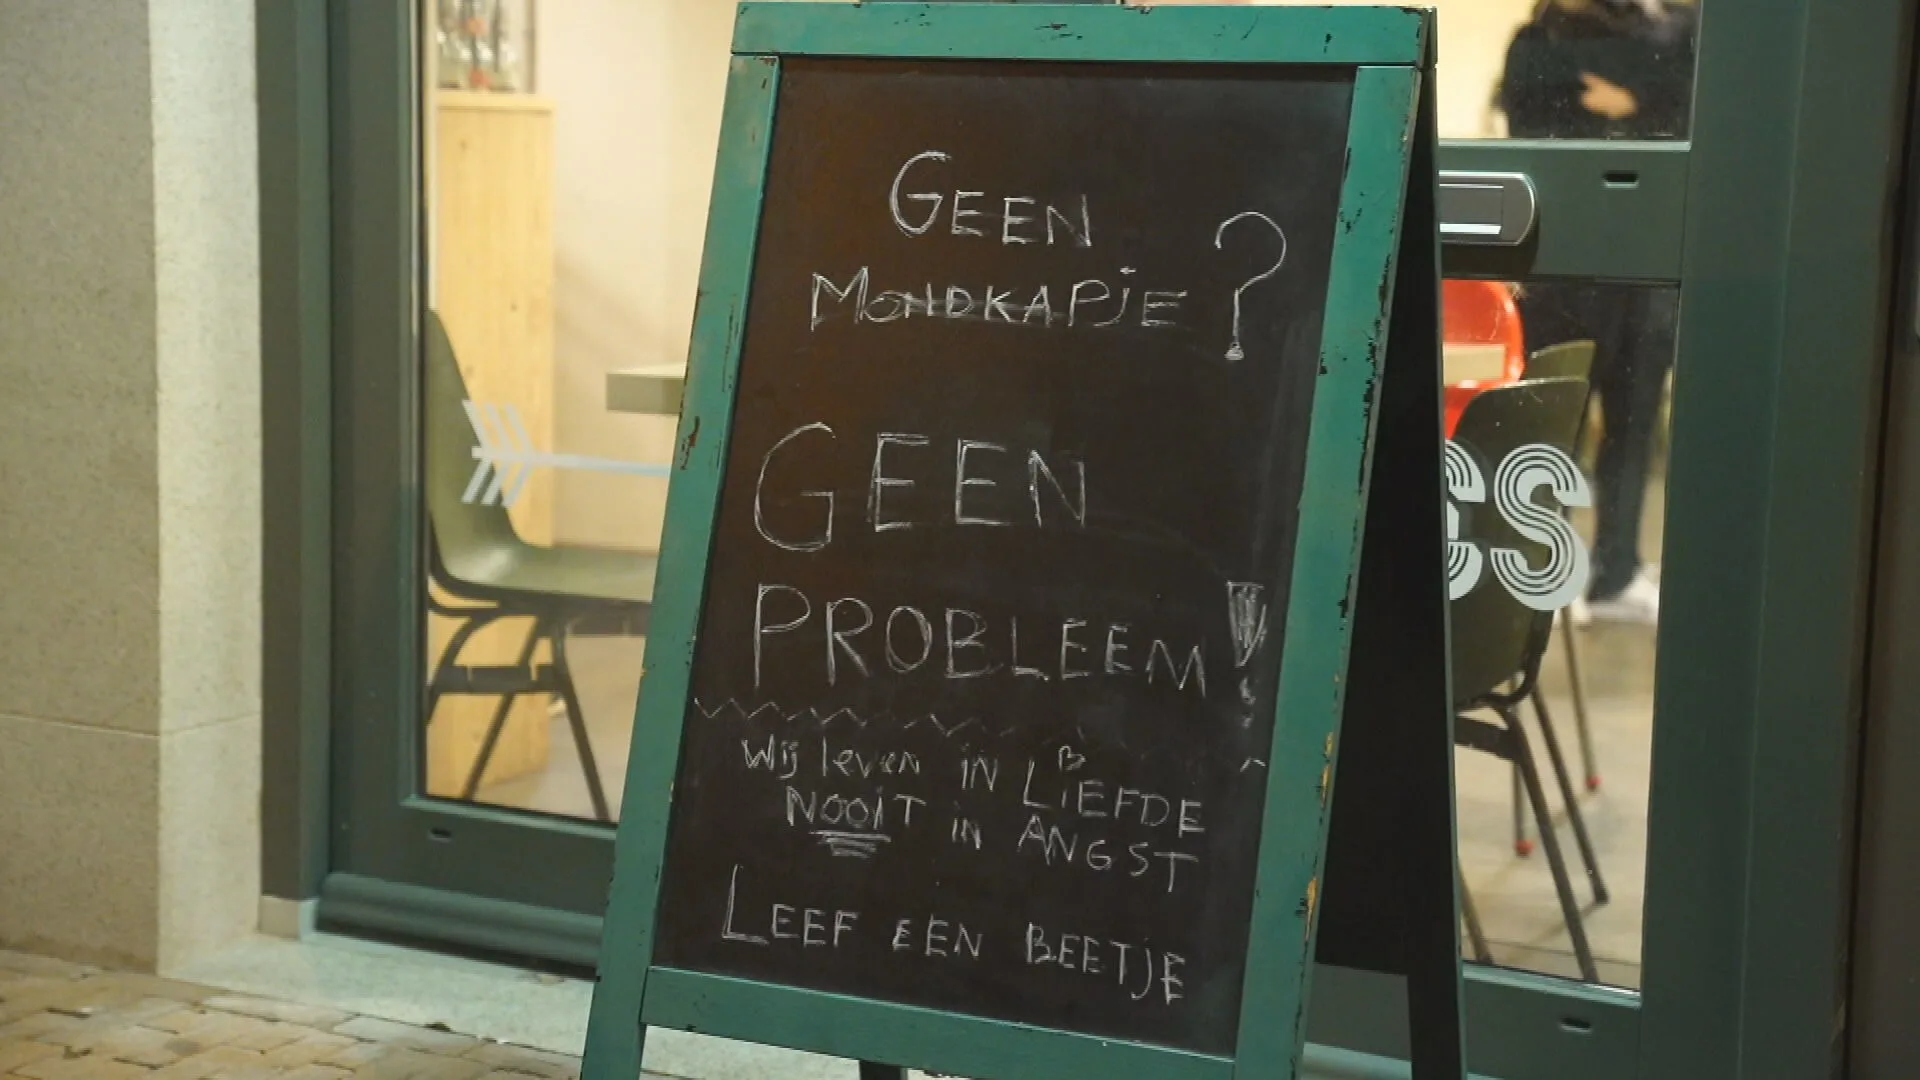 GEEN
MONDKAPJE ?
GEEN
PROBLEEM!
Wij leven in LIEFDE
NOOIT in ANGST
LEEF EEN BEETJE